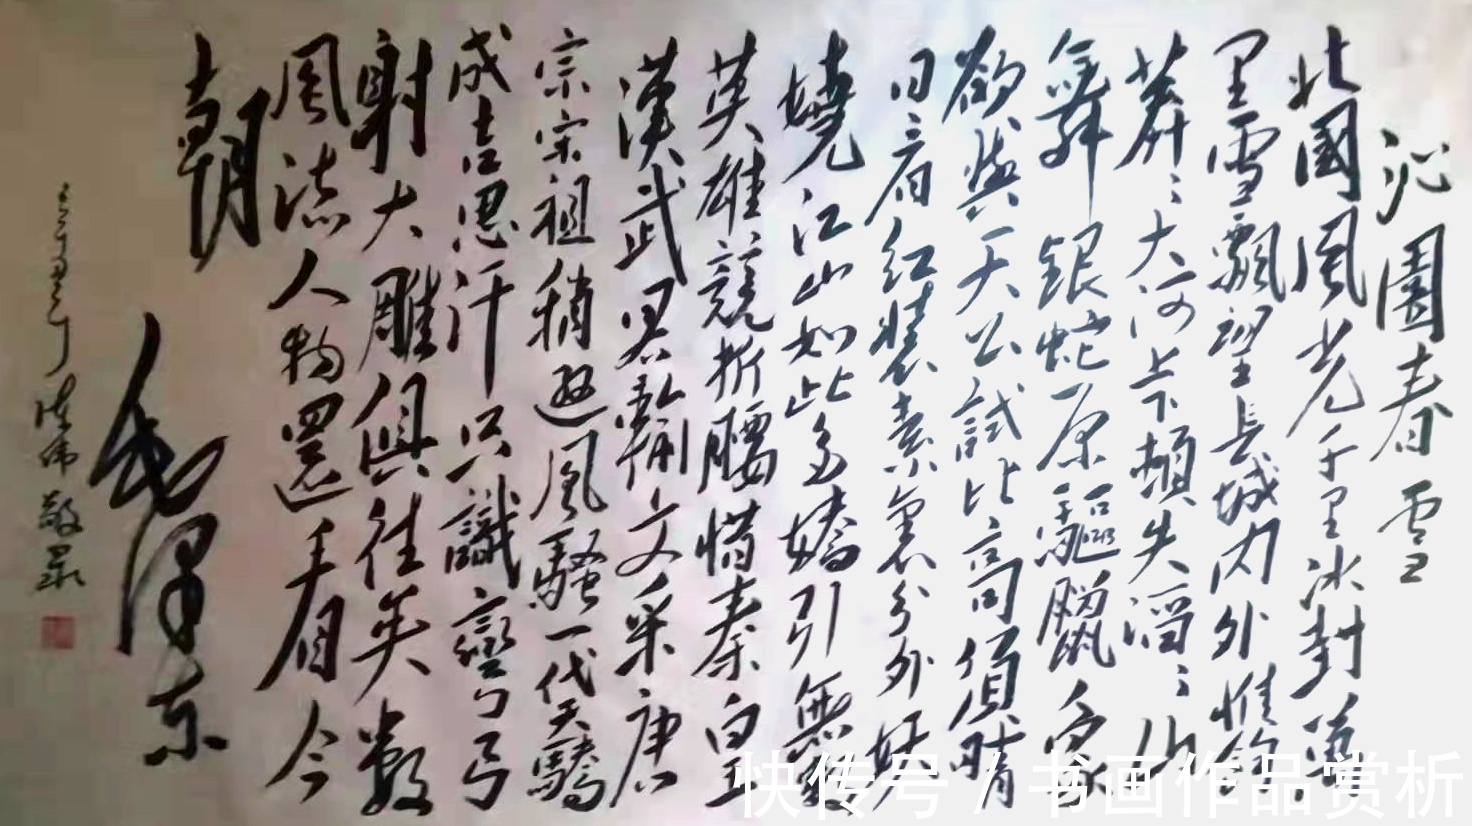 沁園春雪
北國風光千里冰封萬
里雪飄望長城內外惟餘
莽〻大河上下頓失滔〻山
舞銀蛇原驅臘象
欲與天公試比高須晴
日看紅裝素裹分外妖
嬈江山如此多嬌引無數
英雄競折腰惜秦皇
漢武畧輸文采唐
宗宋祖稍遜風騷一代天驕
成吉思汗只識彎弓
射大雕俱往矣數
風流人物還看今
朝
毛澤東
偉敬录
快传号 / 书画作品赏析